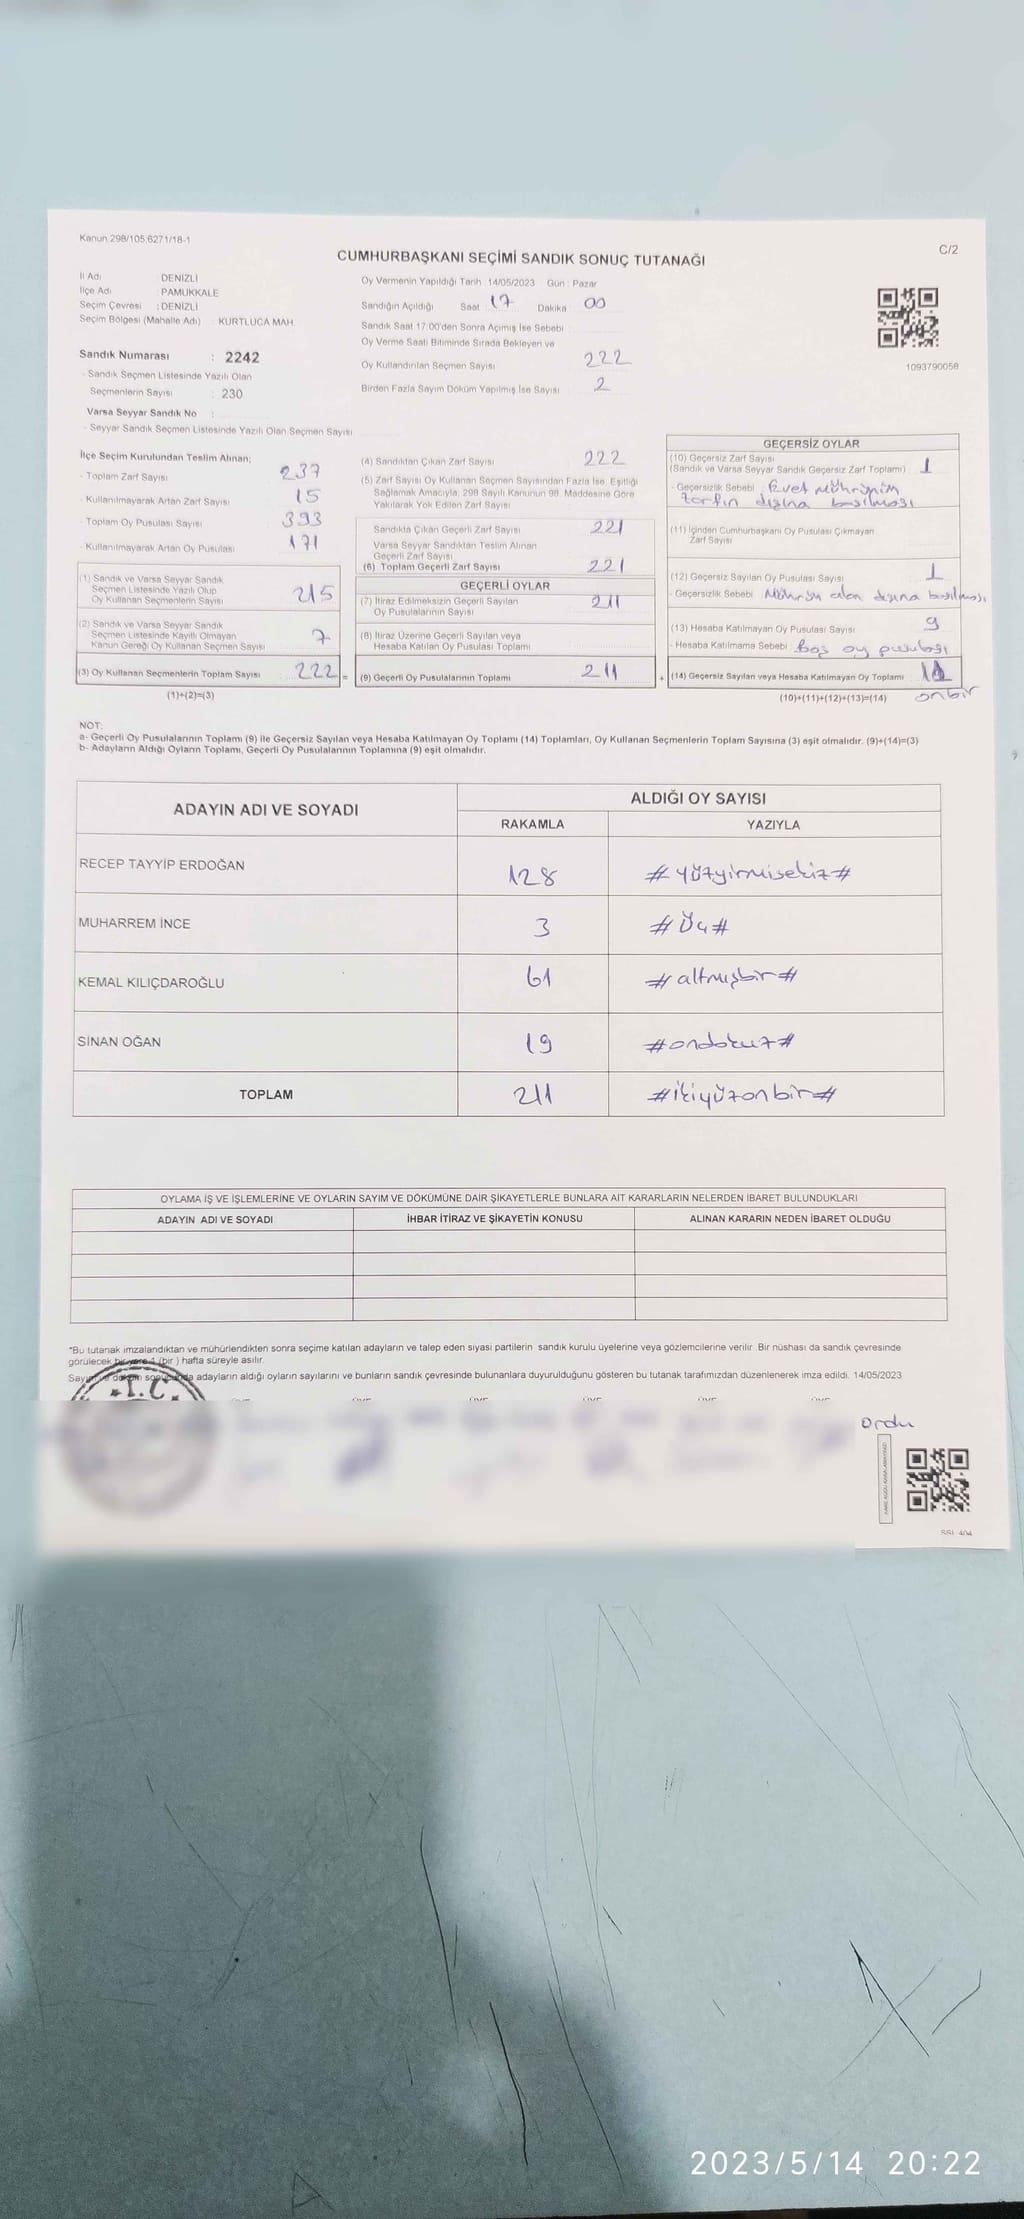 Kanun 298/105;6271/18-1
C/2
CUMHURBAŞKANI SEÇİMİ SANDIK SONUÇ TUTANAĞI
İl Adı : DENİZLİ
İlçe Adı : PAMUKKALE
Seçim Çevresi : DENİZLİ
Seçim Bölgesi (Mahalle Adı) : KURTLUCA MAH.
Sandık Numarası : 2242
- Sandık Seçmen Listesinde Yazılı Olan
Seçmenlerin Sayısı : 230
Varsa Seyyar Sandık No :
- Seyyar Sandık Seçmen Listesinde Yazılı Olan Seçmen Sayısı
Oy Vermenin Yapıldığı Tarih : 14/05/2023 Gün : Pazar
Sandığın Açıldığı Saat 17 Dakika : 00
Sandık Saat 17:00'den Sonra Açımış İse Sebebi
Oy Verme Saati Bitiminde Sırada Bekleyen ve
Oy Kullandırılan Seçmen Sayısı 222
Birden Fazla Sayım Döküm Yapılmış İse Sayısı 2
1093790058
İlçe Seçim Kurulundan Teslim Alınan;
- Toplam Zarf Sayısı 237
- Kullanılmayarak Artan Zarf Sayısı 15
- Toplam Oy Pusulası Sayısı 393
- Kullanılmayarak Artan Oy Pusulası 171
(1) Sandık ve Varsa Seyyar Sandık
Seçmen Listesinde Yazılı Olup
Oy Kullanan Seçmenlerin Sayısı 215
(2) Sandık ve Varsa Seyyar Sandık
Seçmen Listesinde Kayıtlı Olmayan
Kanun Gereği Oy Kullanan Seçmen Sayısı 7
(3) Oy Kullanan Seçmenlerin Toplam Sayısı 222 =
(1)+(2)=(3)
(4) Sandıktan Çıkan Zarf Sayısı 222
(5) Zarf Sayısı Oy Kullanan Seçmen Sayısından Fazla İse, Eşitliği
Sağlamak Amacıyla, 298 Sayılı Kanunun 98. Maddesine Göre
Yakılarak Yok Edilen Zarf Sayısı
Sandıkta Çıkan Geçerli Zarf Sayısı 221
Varsa Seyyar Sandıktan Teslim Alınan
Geçerli Zarf Sayısı
(6) Toplam Geçerli Zarf Sayısı 221
GEÇERLİ OYLAR
(7) İtiraz Edilmeksizin Geçerli Sayılan
Oy Pusulalarının Sayısı 211
(8) İtiraz Üzerine Geçerli Sayılan veya
Hesaba Katılan Oy Pusulası Toplamı
(9) Geçerli Oy Pusulalarının Toplamı 211 +
GEÇERSİZ OYLAR
(10) Geçersiz Zarf Sayısı
(Sandık ve Varsa Seyyar Sandık Geçersiz Zarf Toplamı) 1
- Geçersizlik Sebebi Evet Mührünün
zarfın dışına basılması
(11) İçinden Cumhurbaşkanı Oy Pusulası Çıkmayan
Zarf Sayısı
(12) Geçersiz Sayılan Oy Pusulası Sayısı 1
- Geçersizlik Sebebi Mührün alan dışına basılması
(13) Hesaba Katılmayan Oy Pusulası Sayısı 9
- Hesaba Katılmama Sebebi Boş oy pusulası
(14) Geçersiz Sayılan veya Hesaba Katılmayan Oy Toplamı 11
(10)+(11)+(12)+(13)=(14) onbir
NOT:
a- Geçerli Oy Pusulalarının Toplamı (9) ile Geçersiz Sayılan veya Hesaba Katılmayan Oy Toplamı (14) Toplamları, Oy Kullanan Seçmenlerin Toplam Sayısına (3) eşit olmalıdır. (9)+(14)=(3)
b- Adayların Aldığı Oyların Toplamı, Geçerli Oy Pusulalarının Toplamına (9) eşit olmalıdır.
ADAYIN ADI VE SOYADI
ALDIĞI OY SAYISI
RAKAMLA YAZIYLA
RECEP TAYYİP ERDOĞAN 128 #yüzyirmisekiz#
MUHARREM İNCE 3 #Üç#
KEMAL KILIÇDAROĞLU 61 #altmışbir#
SİNAN OĞAN 19 #ondokuz#
TOPLAM 211 #ikiyüzonbir#
OYLAMA İŞ VE İŞLEMLERİNE VE OYLARIN SAYIM VE DÖKÜMÜNE DAİR ŞİKAYETLERLE BUNLARA AİT KARARLARIN NELERDEN İBARET BULUNDUKLARI
ADAYIN ADI VE SOYADI İHBAR İTİRAZ VE ŞİKAYETİN KONUSU ALINAN KARARIN NEDEN İBARET OLDUĞU
*Bu tutanak imzalandıktan ve mühürlendikten sonra seçime katılan adayların ve talep eden siyasi partilerin sandık kurulu üyelerine veya gözlemcilerine verilir. Bir nüshası da sandık çevresinde
görülecek bir yere 1 (bir ) hafta süreyle asılır.
Sayım ve döküm sonucunda adayların aldığı oyların sayılarını ve bunların sandık çevresinde bulunanlara duyurulduğunu gösteren bu tutanak tarafımızdan düzenlenerek imza edildi. 14/05/2023
T.C.
ordu
2023/5/14 20:22